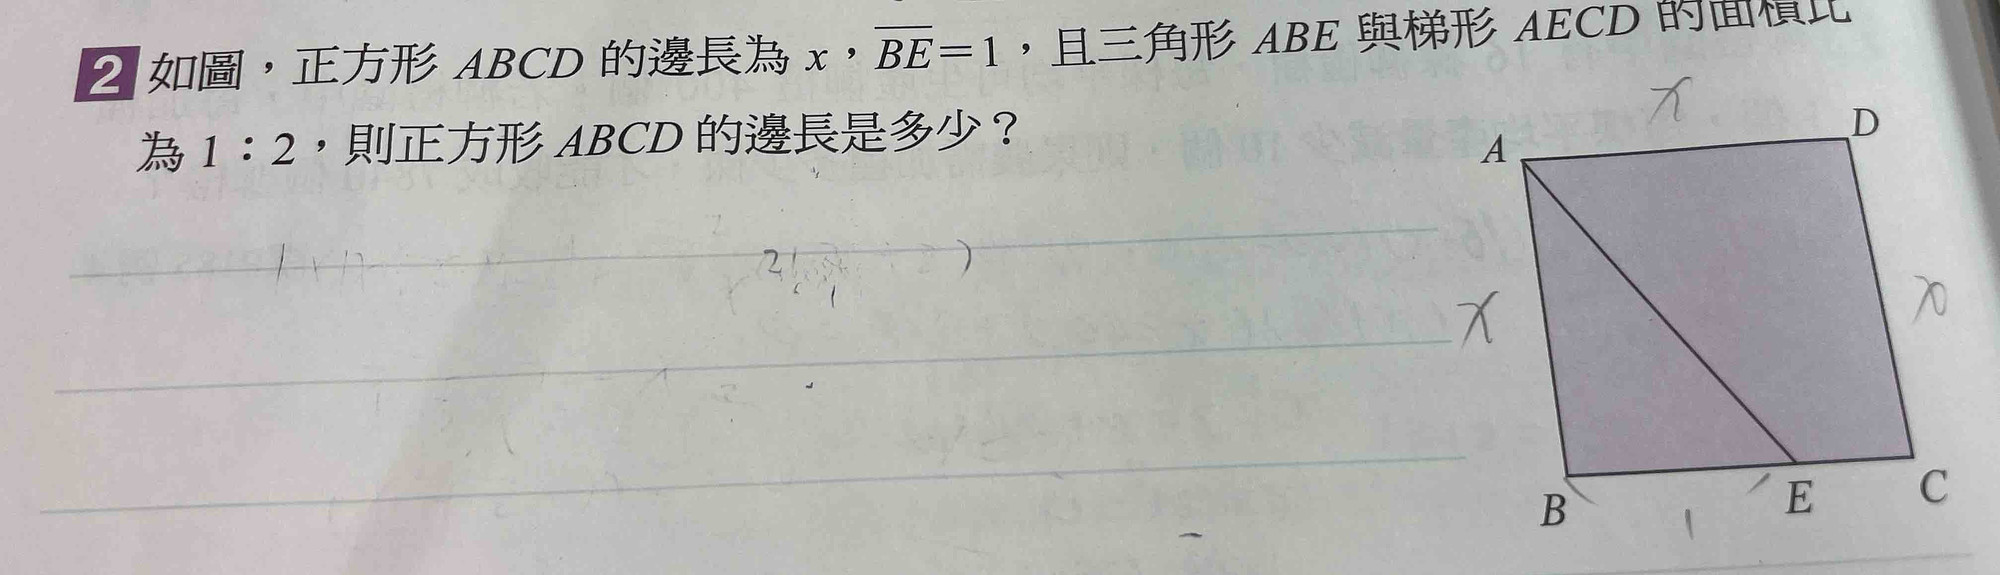 2 如圖，正方形 ABCD 的邊長為 x，BE=1，且三角形 ABE 與梯形 AECD 的面積比
為 1：2，則正方形 ABCD 的邊長是多少？
x
A
D
x
x
B
1
E
C